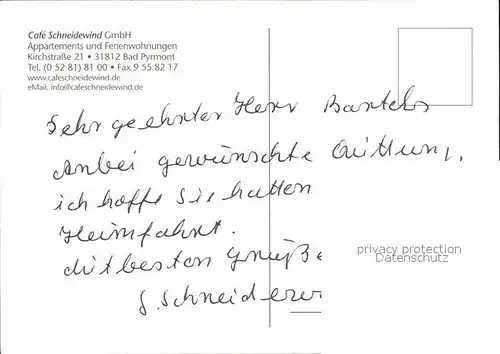 Café Schneidewind GmbH
Appartements und Ferienwohnungen
Kirchstraße 21 • 31812 Bad Pyrmont
Tel. (0 52 81) 81 00 • Fax 9 55 82 17
www.cafeschneidewind.de
eMail: info@cafeschneidewind.de
Sehr geehrter Herr Bartels
Anbei gewünschte Quittung,
ich hoffe Sie hatten
Heimfahrt.
Mit besten Grüße
S. Schneidewi
privacy protection
Datenschutz